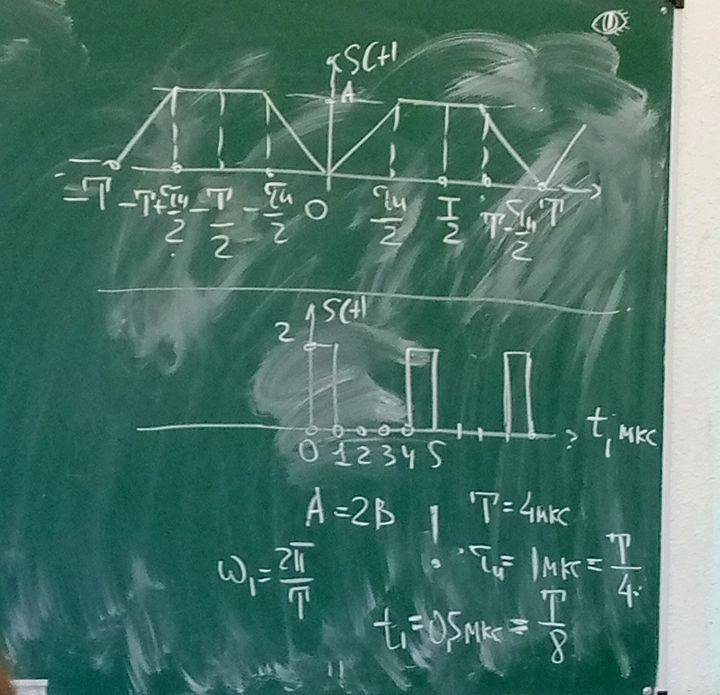 S(t)
A
-T -T+τи/2 -T/2 -τи/2 0 τи/2 T/2 T-τи/2 T
S(t)
2
0 1 2 3 4 5 t, мкс
A=2В ! T=4мкс
ω₁=2π/T τи=1мкс=T/4
t₁=0,5мкс=T/8